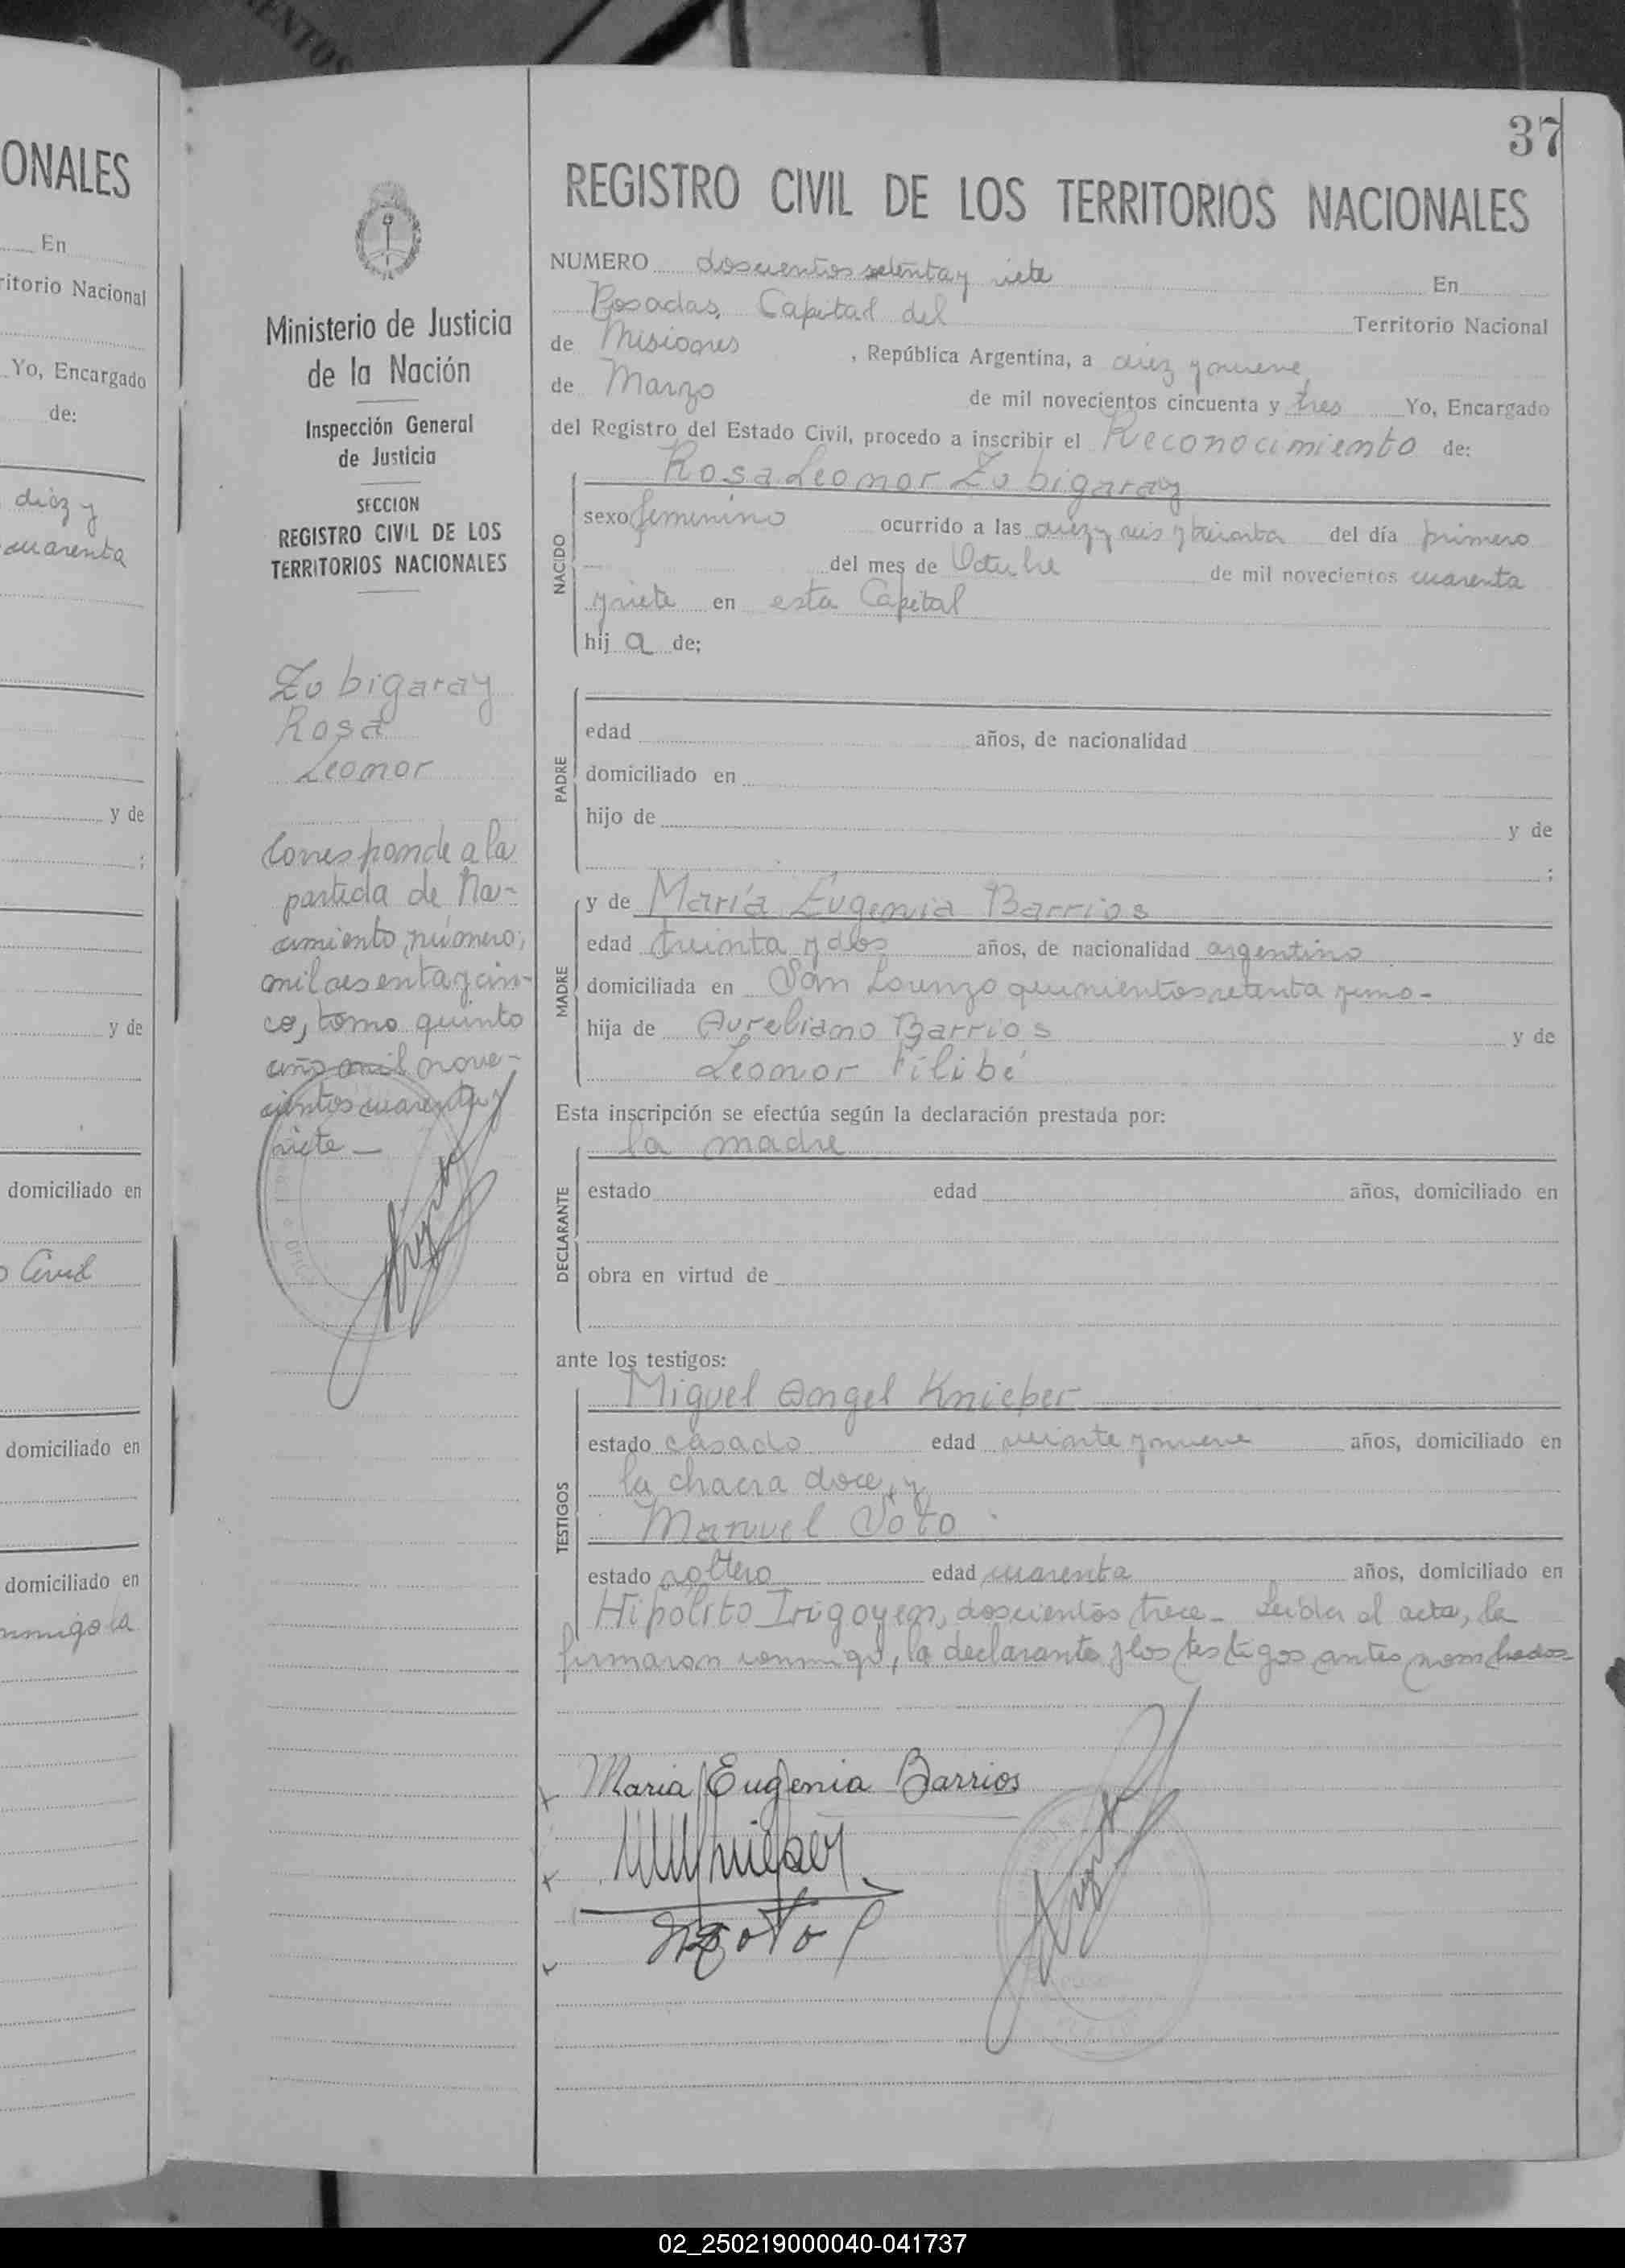 ONALES
En
ritorio Nacional
Yo, Encargado
de:
diez y
cuarenta
y de
;
y de
domiciliado en
Civil
domiciliado en
domiciliado en
Ministerio de Justicia
de la Nación
Inspección General
de Justicia
SECCION
REGISTRO CIVIL DE LOS
TERRITORIOS NACIONALES
Zubigaray
Rosa
Leonor
Corresponde a la
partida de Na-
cimiento, número,
mil sesenta y cin-
co, tomo quinto
año mil nove-
cientos cuarenta y
siete —
37
REGISTRO CIVIL DE LOS TERRITORIOS NACIONALES
NUMERO doscientos setenta y siete En
Posadas, Capital del Territorio Nacional
de Misiones, República Argentina, a diez y nueve,
de Marzo de mil novecientos cincuenta y tres Yo, Encargado
del Registro del Estado Civil, procedo a inscribir el Reconocimiento de:
Rosa Leonor Zubigaray
NACIDO
sexo femenino ocurrido a las diez y seis y treinta del día primero
del mes de Octubre de mil novecientos cuarenta
y siete en esta Capital
hij a de;
PADRE
edad años, de nacionalidad
domiciliado en
hijo de y de
;
MADRE
y de María Eugenia Barrios
edad treinta y dos años, de nacionalidad argentina
domiciliada en San Lorenzo quinientos setenta y uno-
hija de Aureliano Barrios y de
Leonor Filibé
Esta inscripción se efectúa según la declaración prestada por:
la madre
DECLARANTE
estado edad años, domiciliado en
obra en virtud de
ante los testigos:
TESTIGOS
Miguel Angel Knieper
estado casado edad veinte y nueve años, domiciliado en
la chacra doce, y
Manuel Soto
estado soltero edad cuarenta años, domiciliado en
Hipólito Irigoyen, doscientos trece- Leida el acta, la
firmaron conmigo, la declarante y los testigos antes nombrados
Maria Eugenia Barrios
02_250219000040-041737